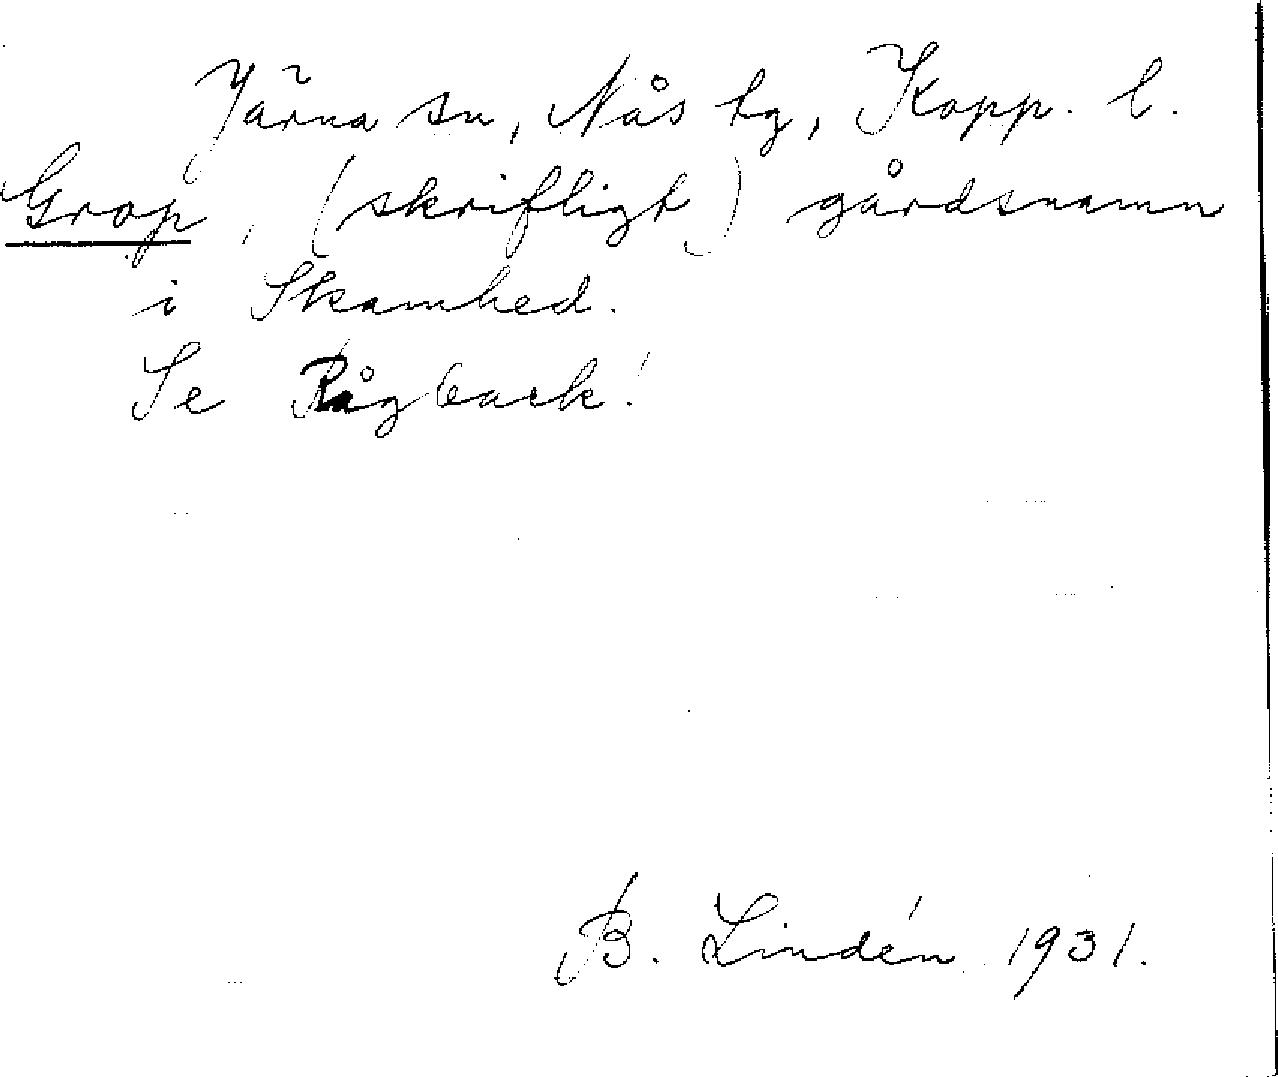 Järna sn, Nås tg, Kopp. l.
Grop, (skrifligt) gårdsnamn
i Skamhed.
Se Rågback!
B. Lindén 1931.